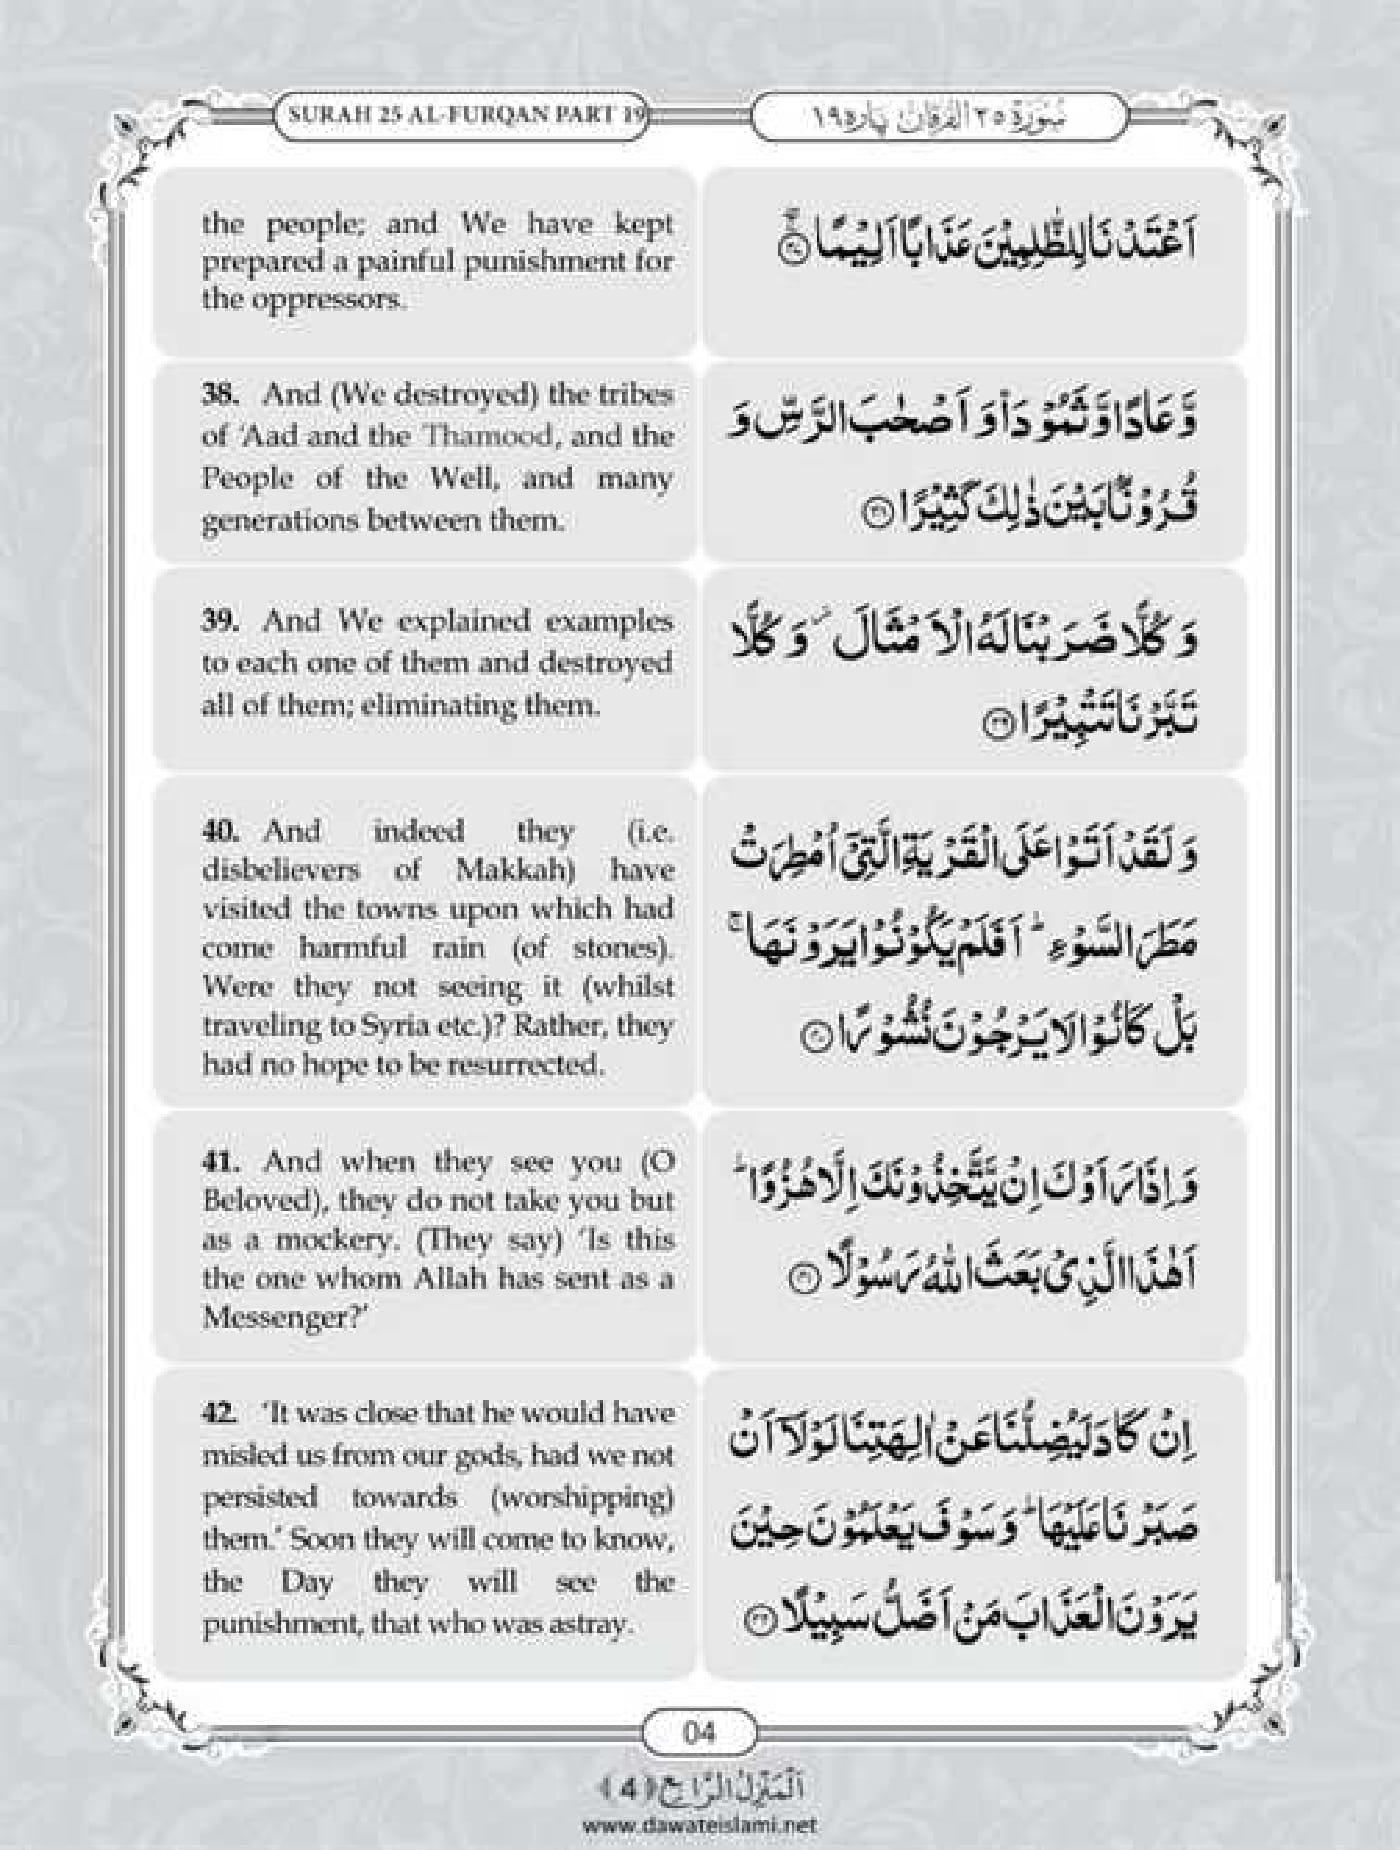 SURAH 25 AL-FURQAN PART 19
سُوْرَةُ ٢٥ اَلْفُرْقَان پارہ ١٩
the people; and We have kept
prepared a painful punishment for
the oppressors.
اَعْتَدْنَا لِلظّٰلِمِیْنَ عَذَابًا اَلِیْمًا ﴿۳۷﴾
38. And (We destroyed) the tribes
of ‘Aad and the Thamood, and the
People of the Well, and many
generations between them.
وَّ عَادًا وَّ ثَمُوْدَا۠ وَ اَصْحٰبَ الرَّسِّ وَ
قُرُوْنًۢا بَیْنَ ذٰلِكَ كَثِیْرًا ﴿۳۸﴾
39. And We explained examples
to each one of them and destroyed
all of them; eliminating them.
وَ كُلًّا ضَرَبْنَا لَهُ الْاَمْثَالَ ٘ وَ كُلًّا
تَبَّرْنَا تَتْبِیْرًا ﴿۳۹﴾
40. And indeed they (i.e.
disbelievers of Makkah) have
visited the towns upon which had
come harmful rain (of stones).
Were they not seeing it (whilst
traveling to Syria etc.)? Rather, they
had no hope to be resurrected.
وَ لَقَدْ اَتَوْا عَلَى الْقَرْیَةِ الَّتِیْۤ اُمْطِرَتْ
مَطَرَ السَّوْءِ ؕ اَفَلَمْ یَكُوْنُوْا یَرَوْنَهَا ۚ
بَلْ كَانُوْا لَا یَرْجُوْنَ نُشُوْرًا ﴿۴۰﴾
41. And when they see you (O
Beloved), they do not take you but
as a mockery. (They say) ‘Is this
the one whom Allah has sent as a
Messenger?’
وَ اِذَا رَاَوْكَ اِنْ یَّتَّخِذُوْنَكَ اِلَّا هُزُوًا ؕ
اَهٰذَا الَّذِیْ بَعَثَ اللّٰهُ رَسُوْلًا ﴿۴۱﴾
42. ‘It was close that he would have
misled us from our gods, had we not
persisted towards (worshipping)
them.’ Soon they will come to know,
the Day they will see the
punishment, that who was astray.
اِنْ كَادَ لَیُضِلُّنَا عَنْ اٰلِهَتِنَا لَوْلَاۤ اَنْ
صَبَرْنَا عَلَیْهَا ؕ وَ سَوْفَ یَعْلَمُوْنَ حِیْنَ
یَرَوْنَ الْعَذَابَ مَنْ اَضَلُّ سَبِیْلًا ﴿۴۲﴾
04
اَلْمَنْزِلُ الرَّابِع ﴿4﴾
www.dawateislami.net